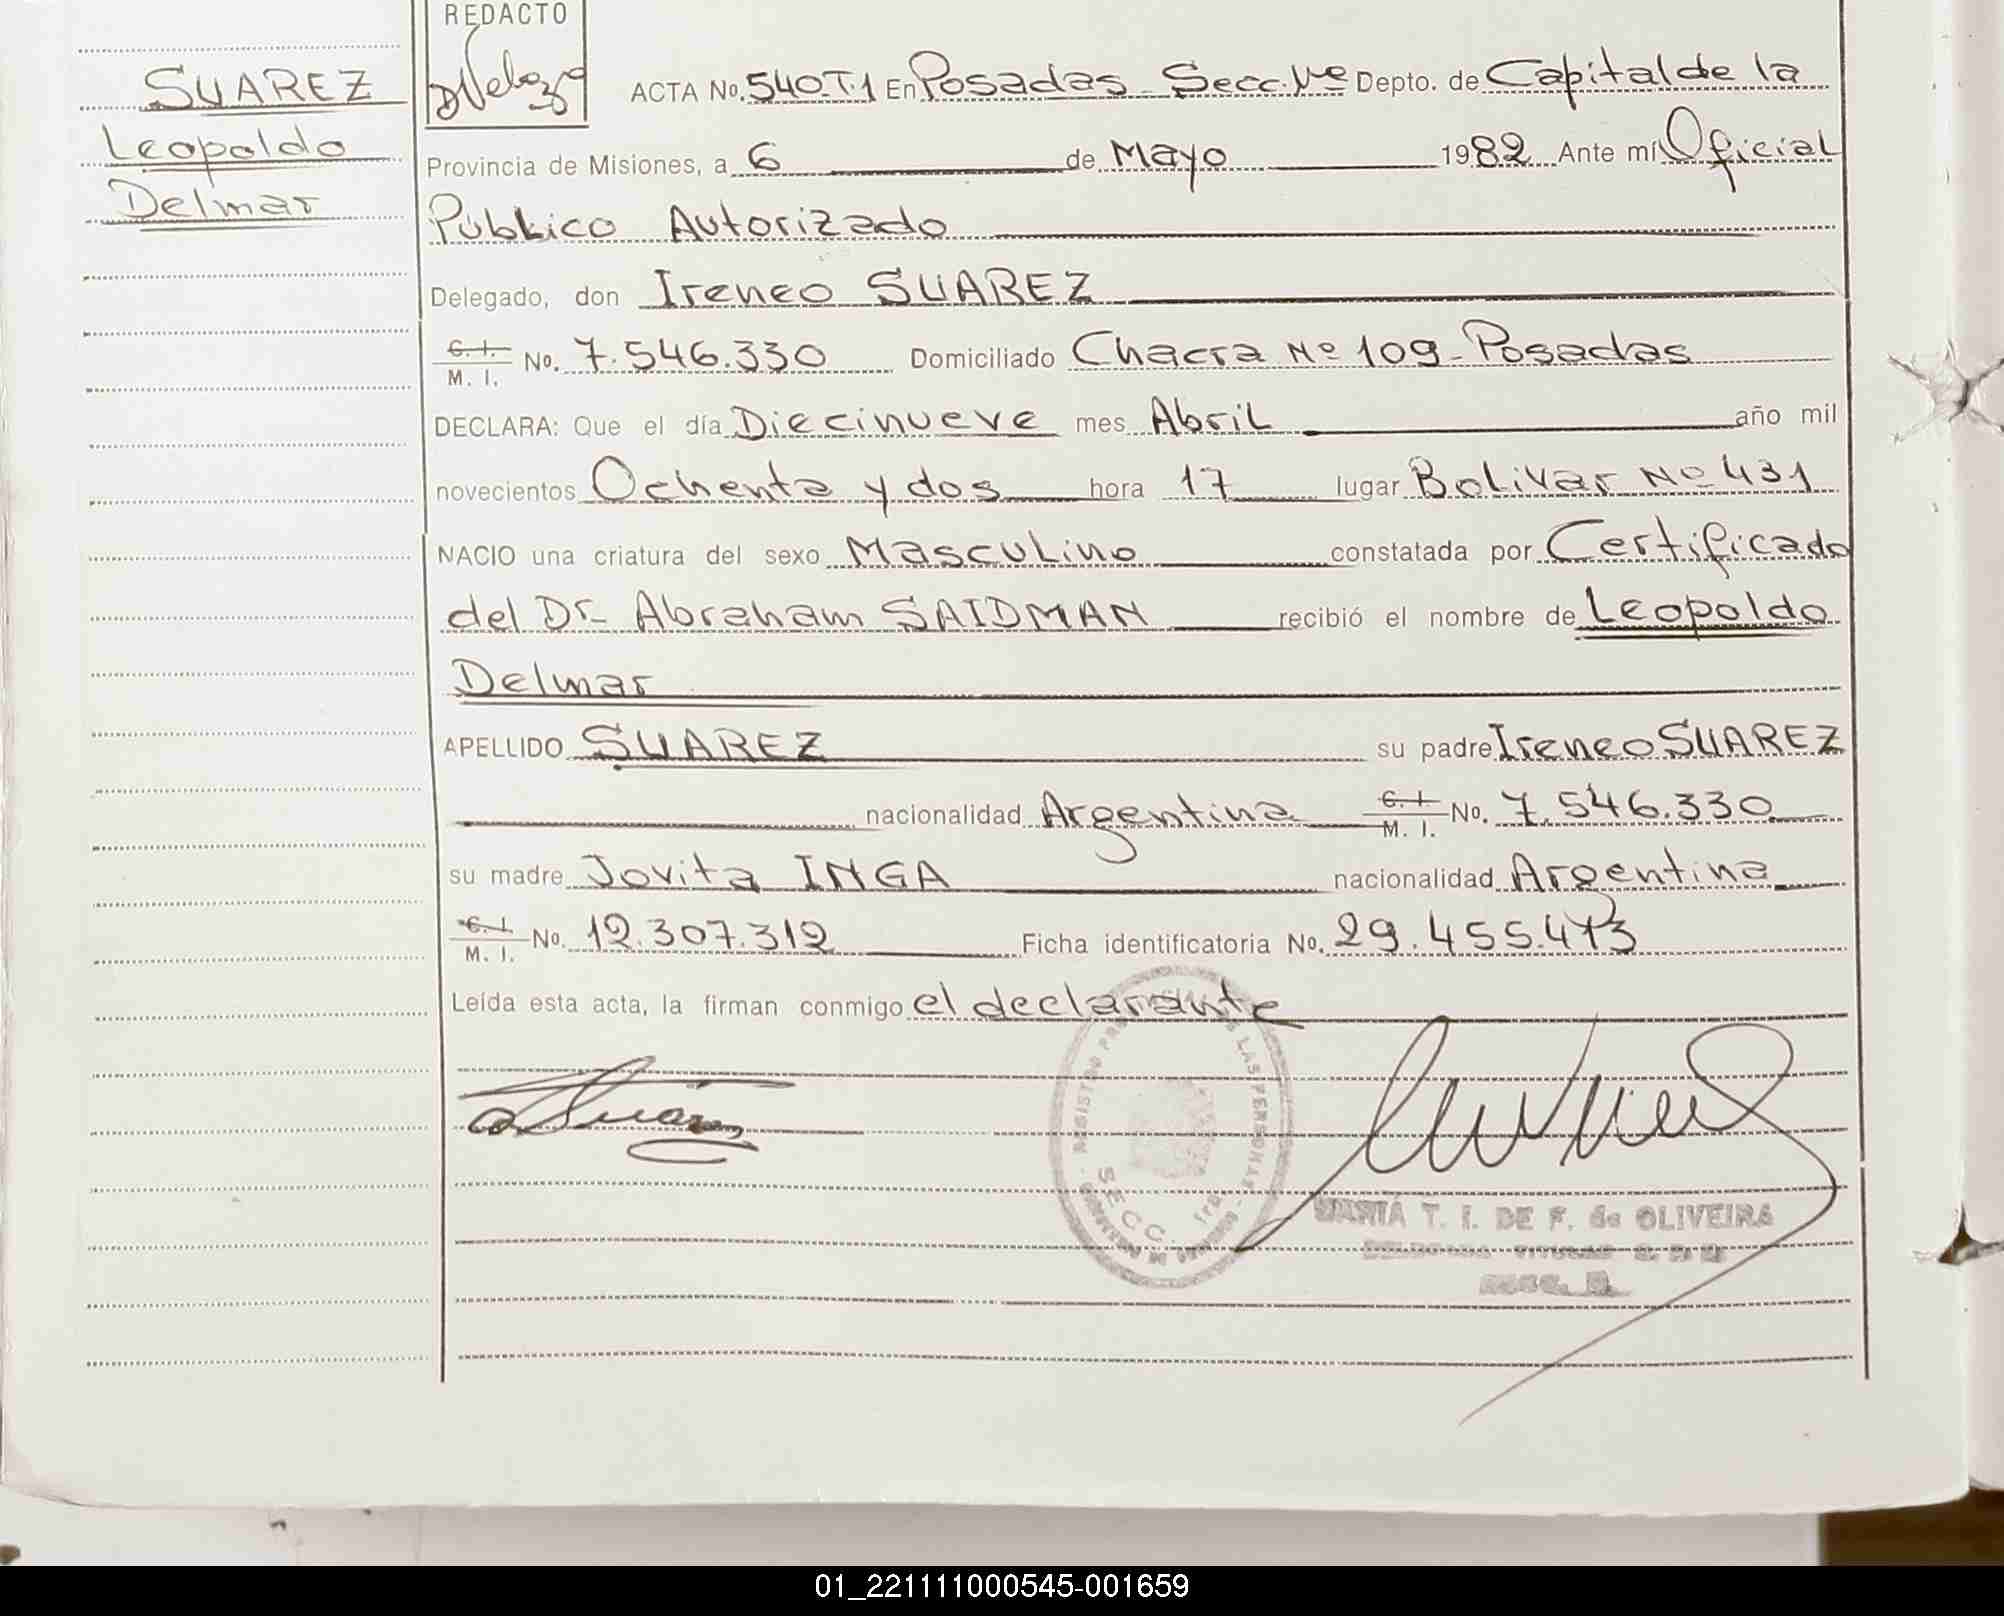 REDACTO
SUAREZ
Leopoldo
Delmar
ACTA No. 540 T.1 En Posadas - Secc. Depto. de Capital de la
Provincia de Misiones, a 6 de Mayo 1982 Ante mí Oficial
Público Autorizado
Delegado, don Ireneo SUAREZ
C. I. / M. I. No. 7.546.330 Domiciliado Chacra Nº 109 - Posadas
DECLARA: Que el día Diecinueve mes Abril año mil
novecientos Ochenta y dos hora 17 lugar Bolivar Nº 431
NACIO una criatura del sexo Masculino constatada por Certificado
del Dr. Abraham SAIDMAN recibió el nombre de Leopoldo
Delmar
APELLIDO SUAREZ su padre Ireneo SUAREZ
nacionalidad Argentina C. I. / M. I. No. 7.546.330
su madre Jovita INGA nacionalidad Argentina
C. I. / M. I. No. 12.307.312 Ficha identificatoria No. 29.455.473
Leída esta acta, la firman conmigo el declarante
REGISTRO LAS PERSONAS
SECC. 1ra
MARIA T. I. DE F. de OLIVEIRA
01_221111000545-001659